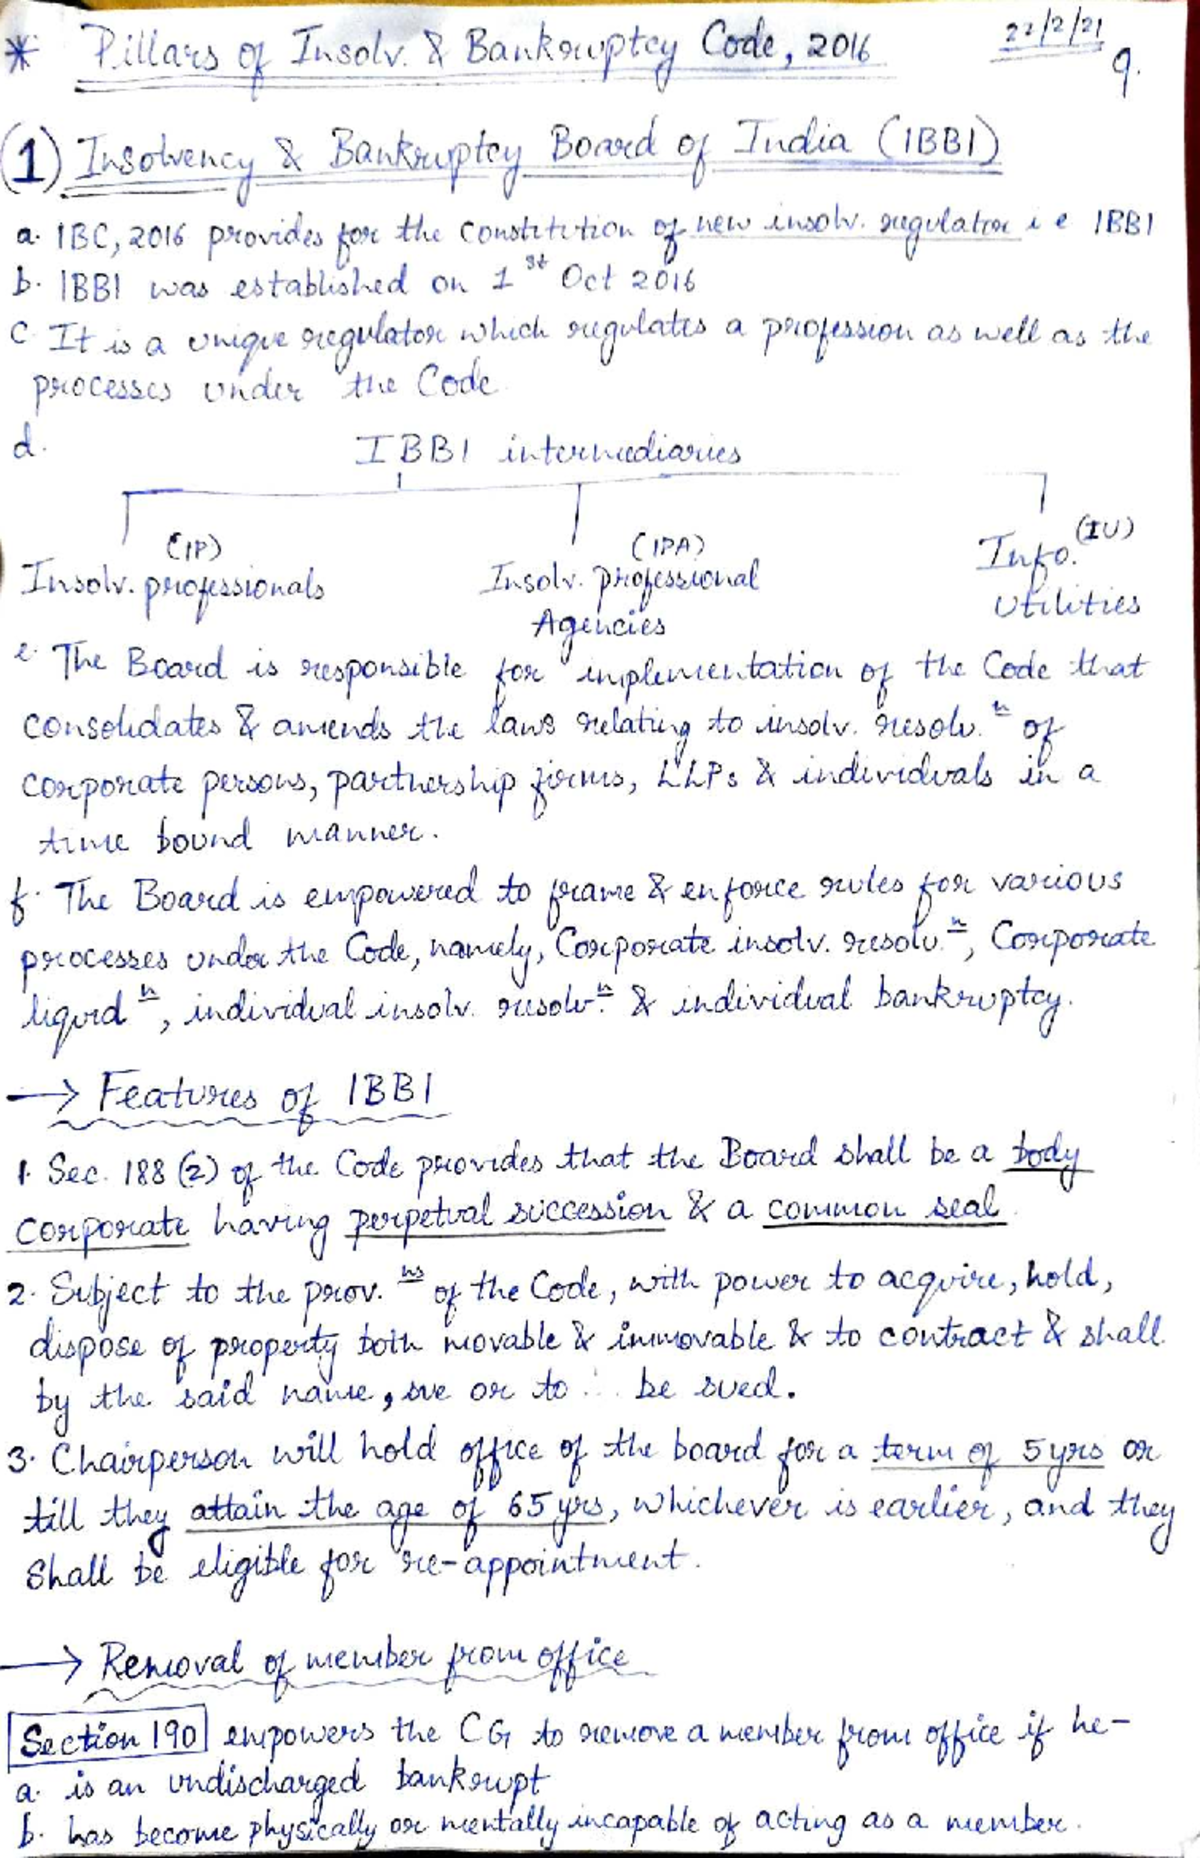 * Pillars of Insolv. & Bankruptcy Code, 2016 22/2/21
9.
(1) Insolvency & Bankruptcy Board of India (IBBI)
a. IBC, 2016 provides for the constitution of new insolv. regulator i e IBBI
b. IBBI was established on 1st Oct 2016
c. It is a unique regulator which regulates a profession as well as the
processes under the Code
d. IBBI intermediaries
(IP) (IPA) (IU)
Insolv. professionals Insolv. professional Info.
Agencies Utilities
e. The Board is responsible for implementation of the Code that
consolidates & amends the laws relating to insolv. resolv.n of
corporate persons, partnership firms, LLPs & individuals in a
time bound manner.
f. The Board is empowered to frame & enforce rules for various
processes under the Code, namely, Corporate insolv. resolv.n, Corporate
liquidn, individual insolv. resolvn & individual bankruptcy.
→ Features of IBBI
1. Sec. 188 (2) of the Code provides that the Board shall be a body
corporate having perpetual succession & a common seal
2. Subject to the prov.ns of the Code, with power to acquire, hold,
dispose of property both movable & immovable & to contract & shall
by the said name, sue or to be sued.
3. Chairperson will hold office of the board for a term of 5yrs or
till they attain the age of 65 yrs, whichever is earlier, and they
shall be eligible for re-appointment.
→ Removal of member from office
Section 190 empowers the CG to remove a member from office if he-
a. is an undischarged bankrupt
b. has become physically or mentally incapable of acting as a member.